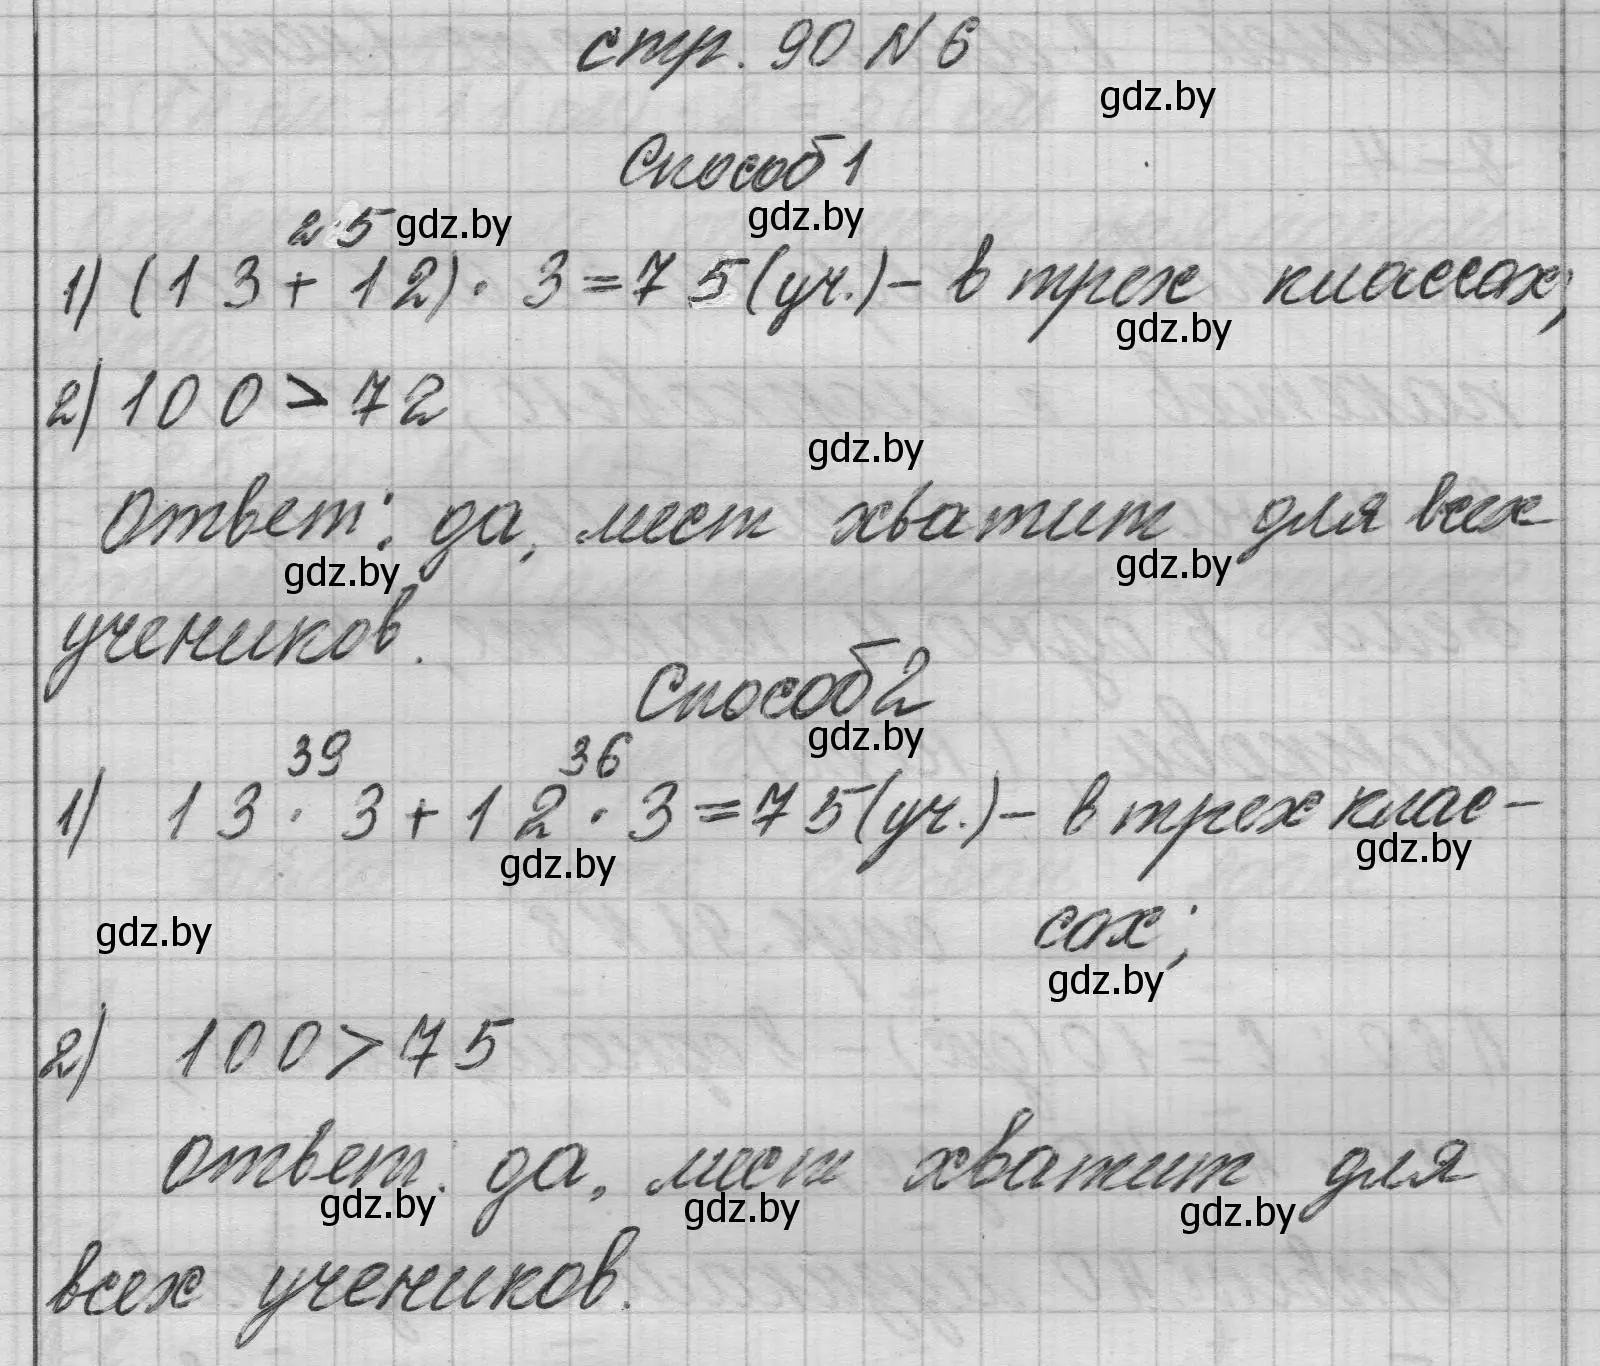 стр. 90 N 6
gdz.by
Способ 1
25 gdz.by gdz.by
1) (13 + 12) · 3 = 75 (уч.) - в трех классах;
gdz.by
2) 100 > 72
gdz.by
Ответ: да, мест хватит для всех
gdz.by gdz.by
учеников.
Способ 2
gdz.by
39 36
1) 13 · 3 + 12 · 3 = 75 (уч.) - в трех клас-
gdz.by gdz.by
gdz.by сах;
gdz.by
2) 100 > 75
Ответ: да, мест хватит для
gdz.by gdz.by gdz.by
всех учеников.